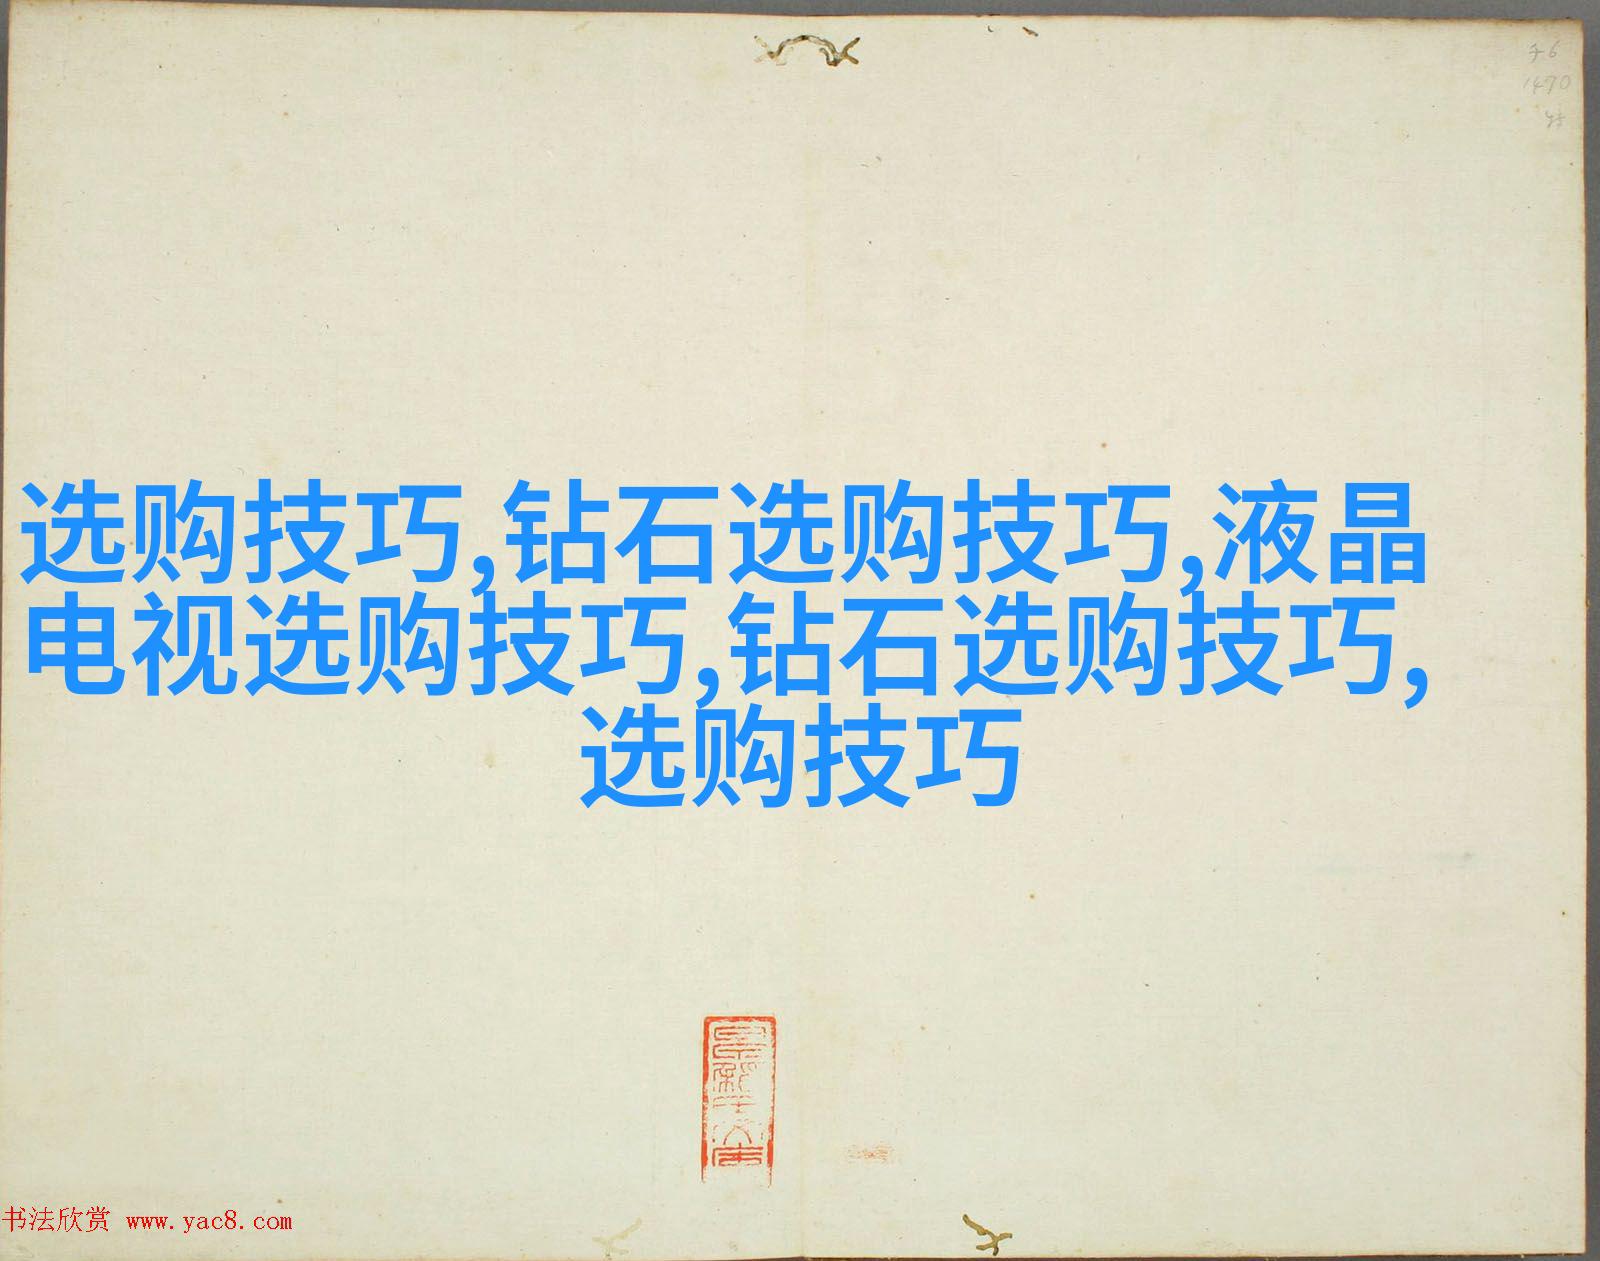 1470
选购技巧,钻石选购技巧,液晶
电视选购技巧,钻石选购技巧,
选购技巧
书法欣赏 www.yac8.com